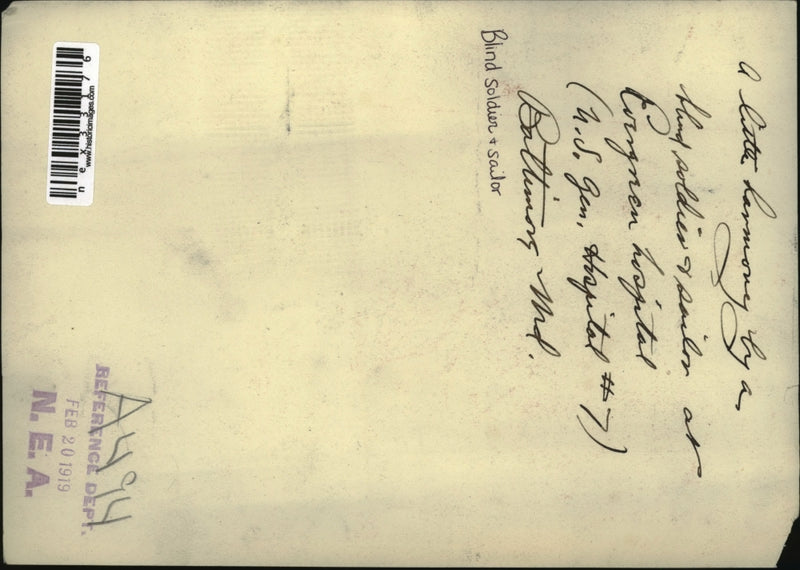 A little harmony by a
blind soldier & sailor at
Evergreen hospital
(U.S. Gen. Hospital #7)
Baltimore, Md.
Blind soldier & sailor
nex33176
www.historicimages.com
A494
REFERENCE DEPT.
FEB 20 1919
N. E. A.